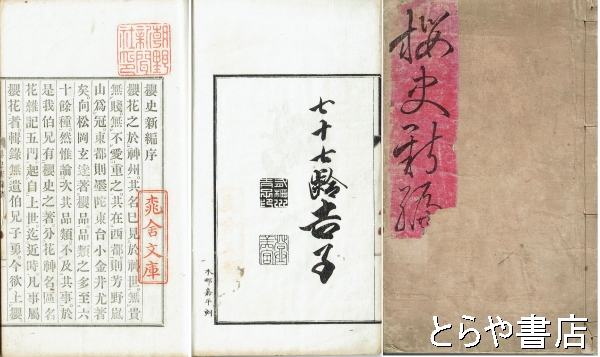 櫻史新編
七十七齡吉子
木邨嘉平刻
潮野
新聞
社印
櫻史新編序
櫻花之於神州。其名已見於神世。無貴
無賤。無不愛重之。其在西都則芳野嵐
山爲冠。東都則墨陀東台小金井尤著
矣。向松岡玄達著櫻品。品類之多至六
十餘種。然惟論次其品類。不及其事。於
是我伯兄有櫻史之著。分花神名區名
花雜記五門。起自上世迄近時。凡事屬
櫻花者輯錄無遺。伯兄子勇今欲上櫻
窕舍文庫
とらや書店